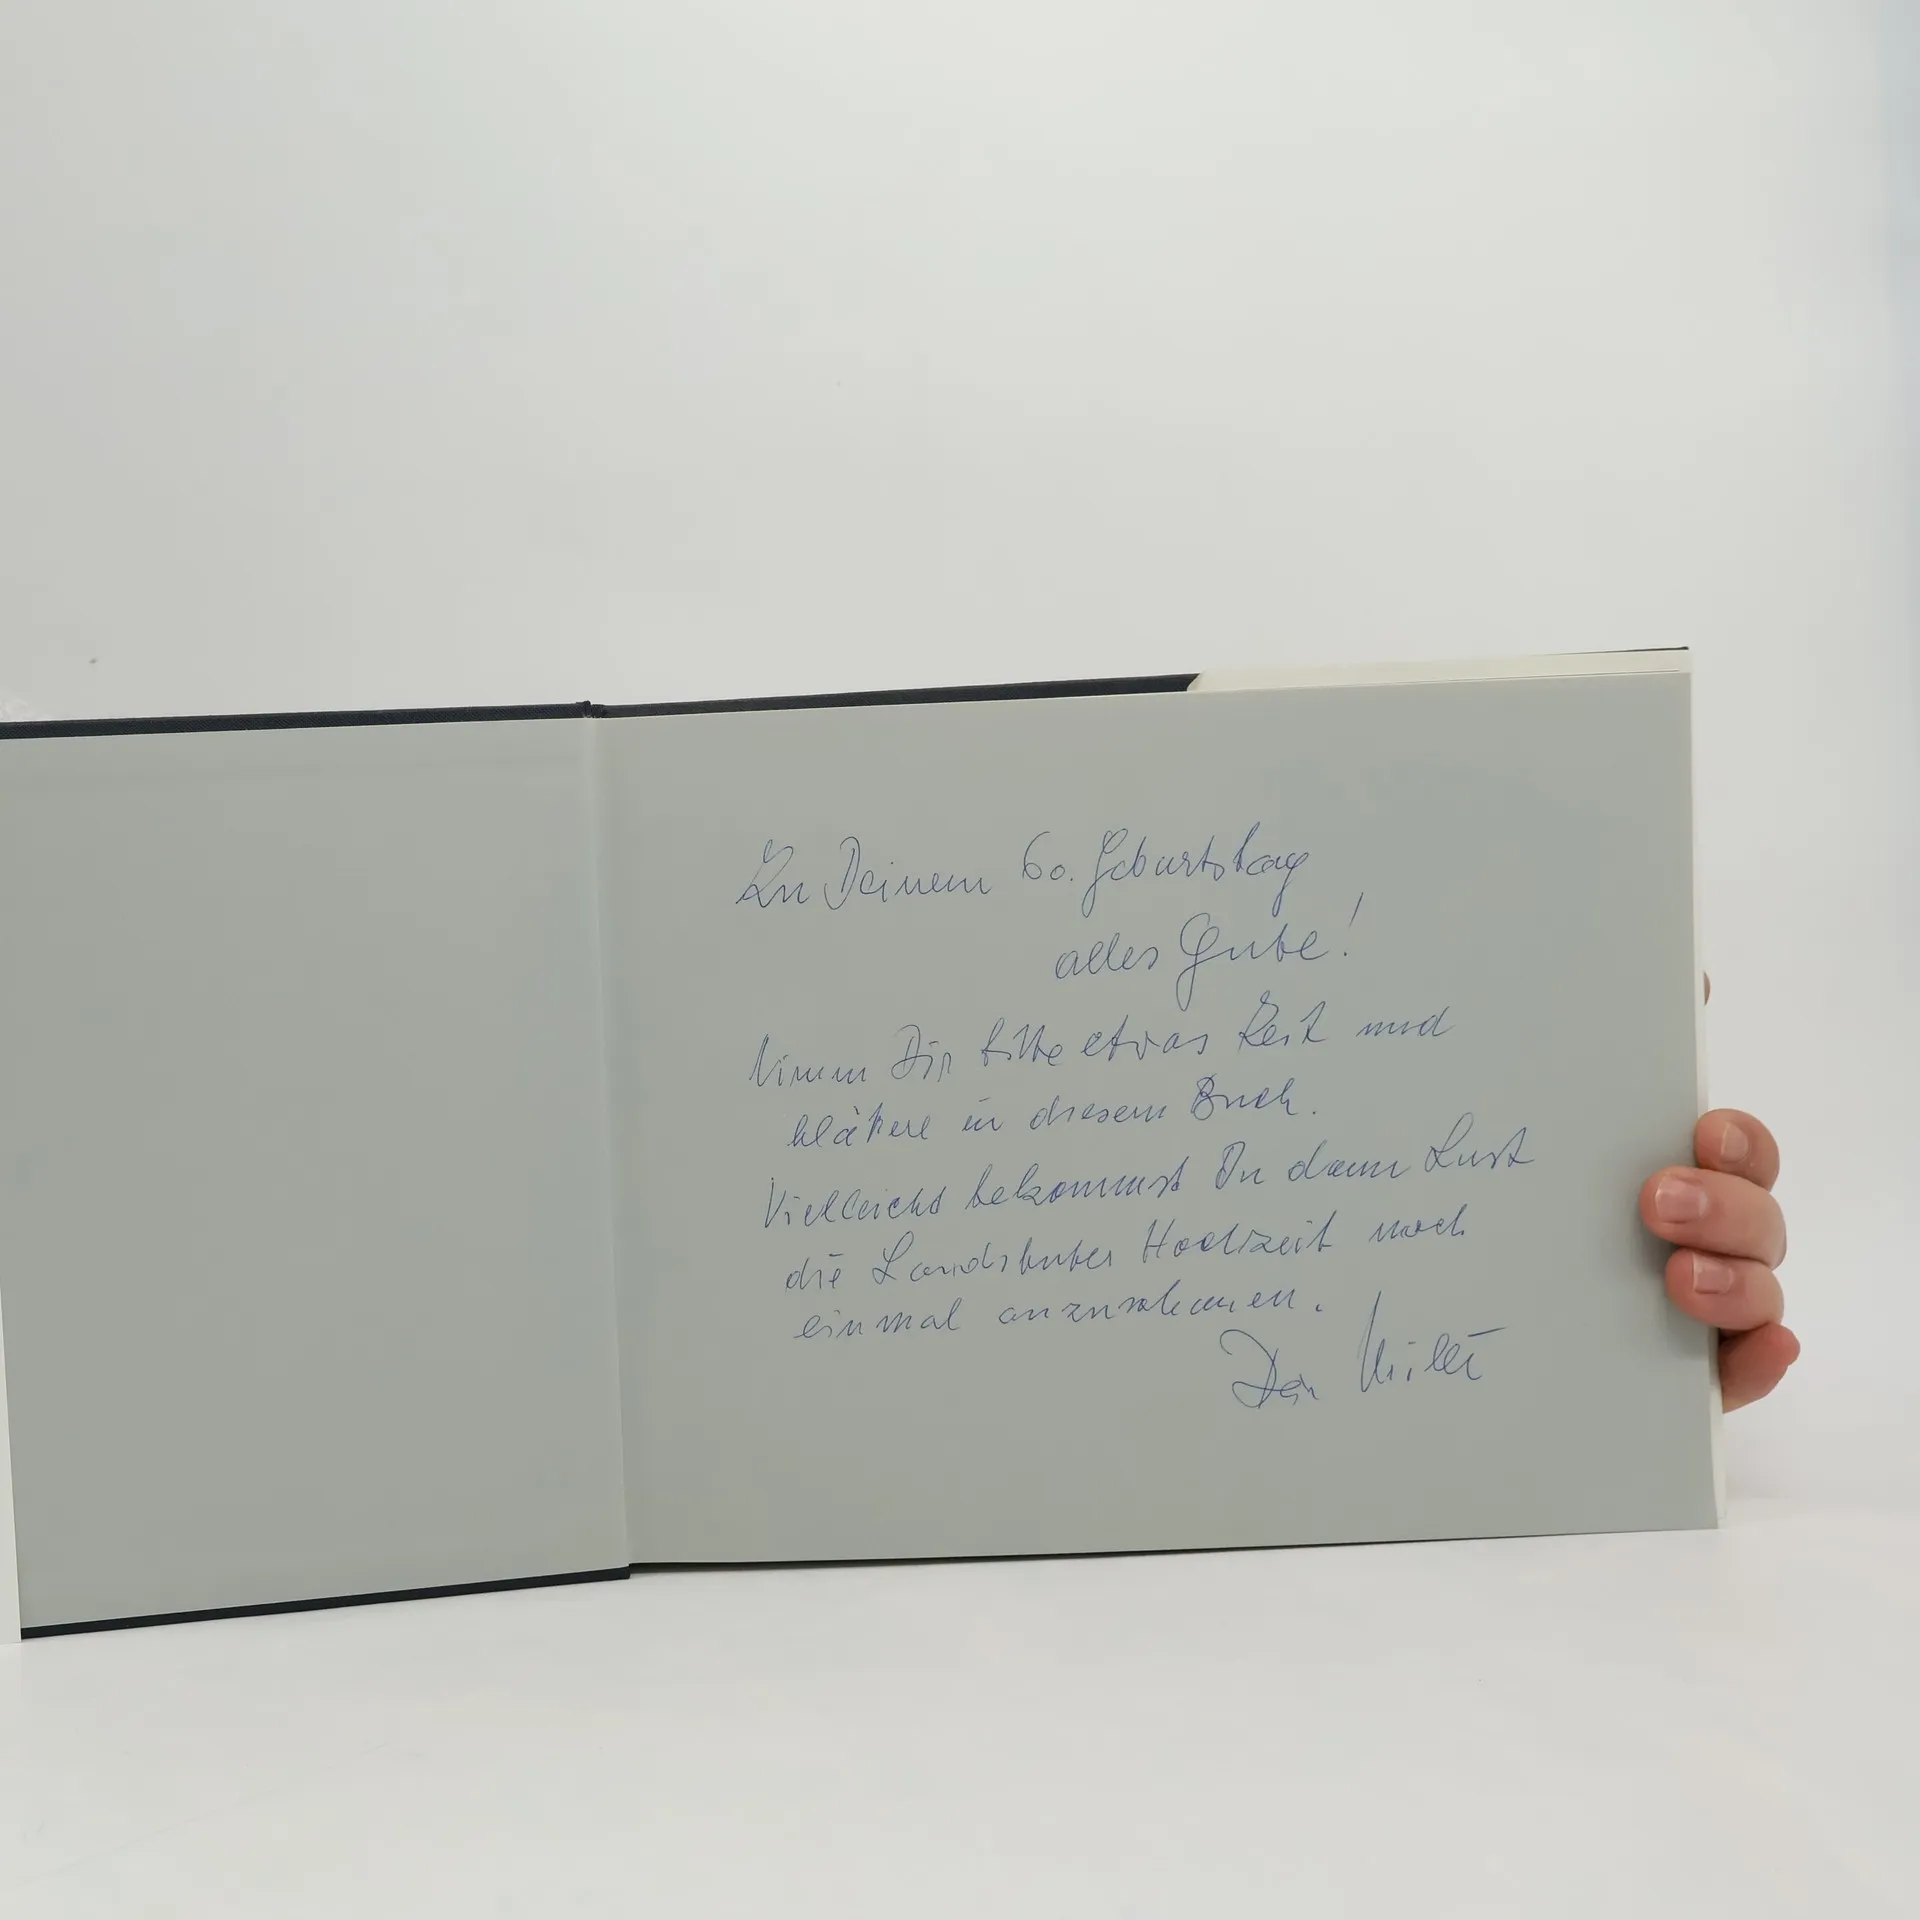 Zu Deinem 60. Geburtstag
alles Gute!
Nimm Dir bitte etwas Zeit und
blättere in diesem Buch.
Vielleicht bekommst Du dann Lust
die Landshuter Hochzeit noch
einmal anzuschauen.
Dein